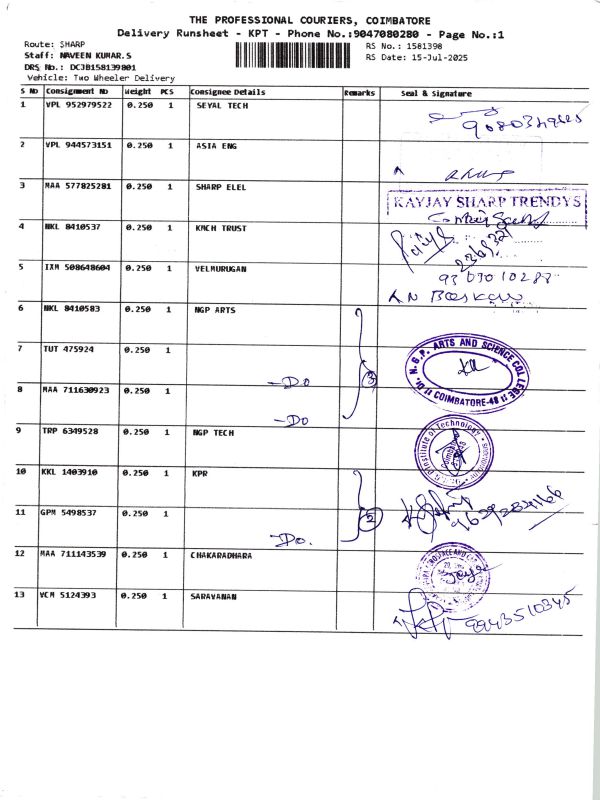 THE PROFESSIONAL COURIERS, COIMBATORE
Delivery Runsheet - KPT - Phone No.:9047080280 - Page No.:1
Route: SHARP
RS No.: 1581398
Staff: NAVEEN KUMAR.S
RS Date: 15-Jul-2025
DRS No.: DCJB158139801
Vehicle: Two Wheeler Delivery
S No Consignment No Weight PCS Consignee Details Remarks Seal & Signature
1 VPL 952979522 0.250 1 SEYAL TECH
2 VPL 944573151 0.250 1 ASIA ENG
3 MAA 577825281 0.250 1 SHARP ELEL
KAYJAY SHARP TRENDYS
4 NKL 8410537 0.250 1 KMCH TRUST
5 IXM 508648604 0.250 1 VELMURUGAN
K N Baskar
6 NKL 8410583 0.250 1 NGP ARTS
7 TUT 475924 0.250 1
DR. N.G.P. ARTS AND SCIENCE COLLEGE
COIMBATORE-48
-Do
3
8 MAA 711630923 0.250 1
-Do
9 TRP 6349528 0.250 1 NGP TECH
Institute of Technology
10 KKL 1403910 0.250 1 KPR
11 GPM 5498537 0.250 1
2
-Do.
12 MAA 711143539 0.250 1 CHAKARADHARA
13 VCM 5124393 0.250 1 SARAVANAN
9943510345